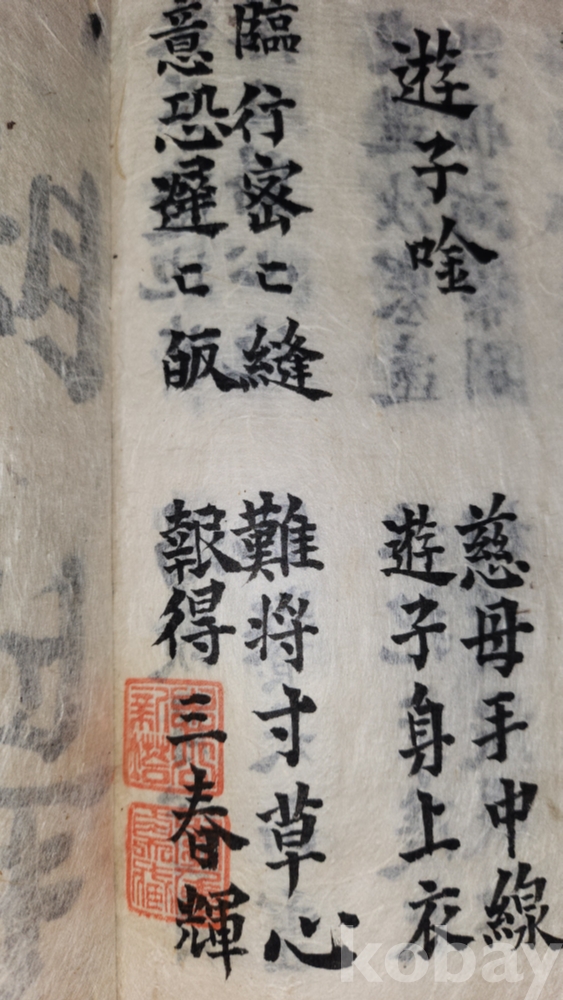 遊子唫
慈母手中線
遊子身上衣
臨行密〻縫
意恐遲〻皈
難将寸草心
報得三春輝
kobay